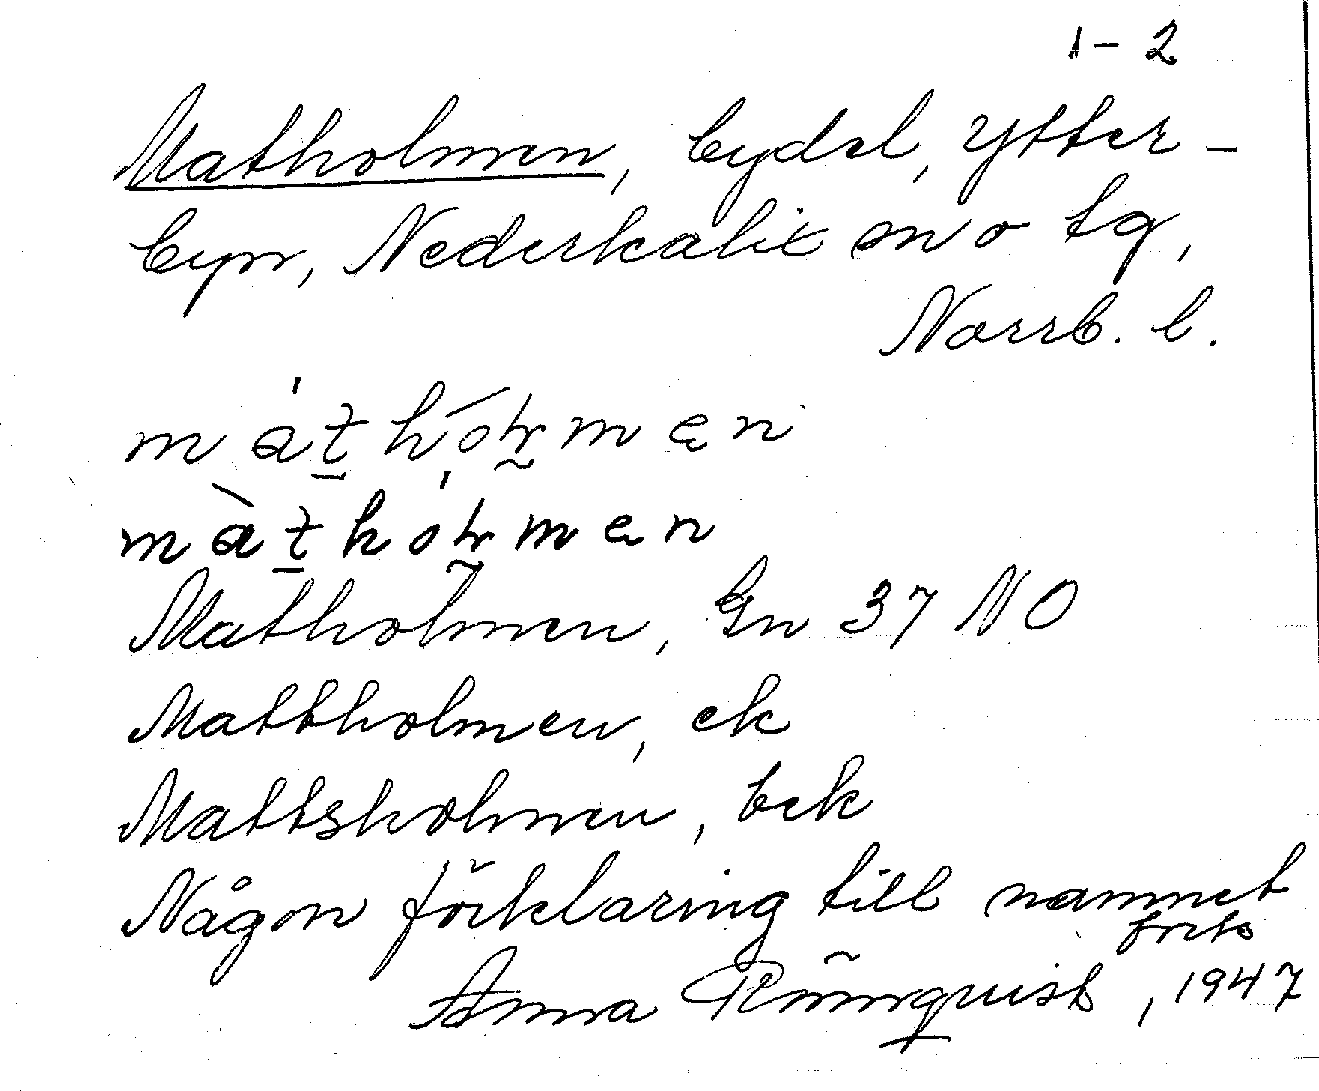 1-2
Matholmen, bydel, Ytter-
byn, Nederkalix sn o tg,
Norrb. l.
Matholmen, Gn 37 NO
Mattholmen, ek
Mattsholmen, bek
Någon förklaring till namnet
Anna Rönnquist, 1947